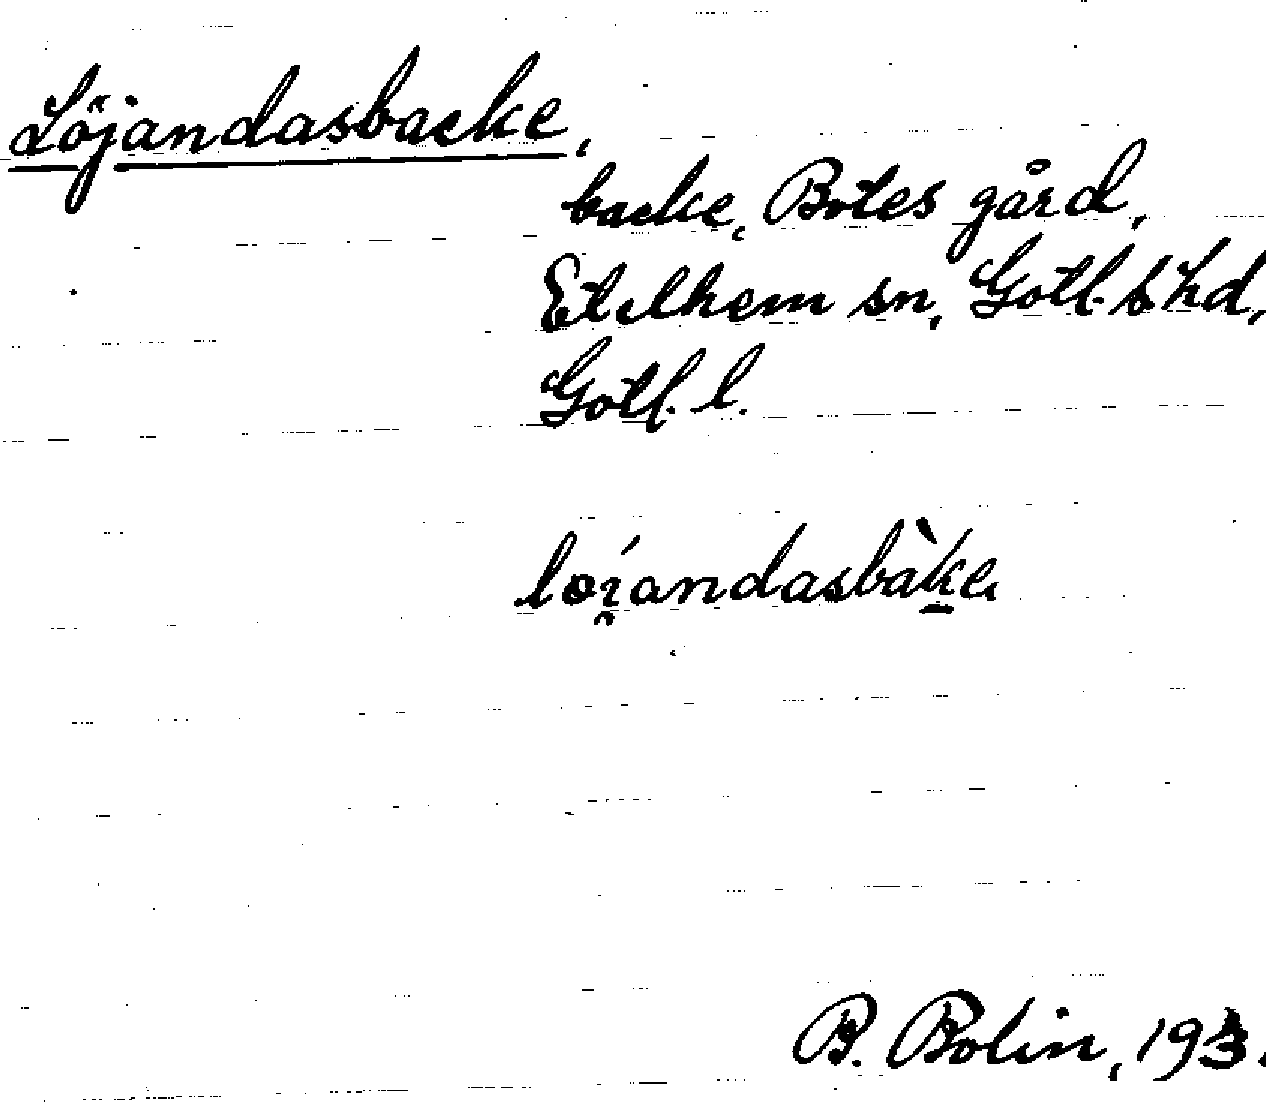 Löjandasbacke,
backe, Botes gård,
Etelhem sn, Gotl. s hd,
Gotl. l.
løí̯andasbàk̲e
B. Bolin, 193